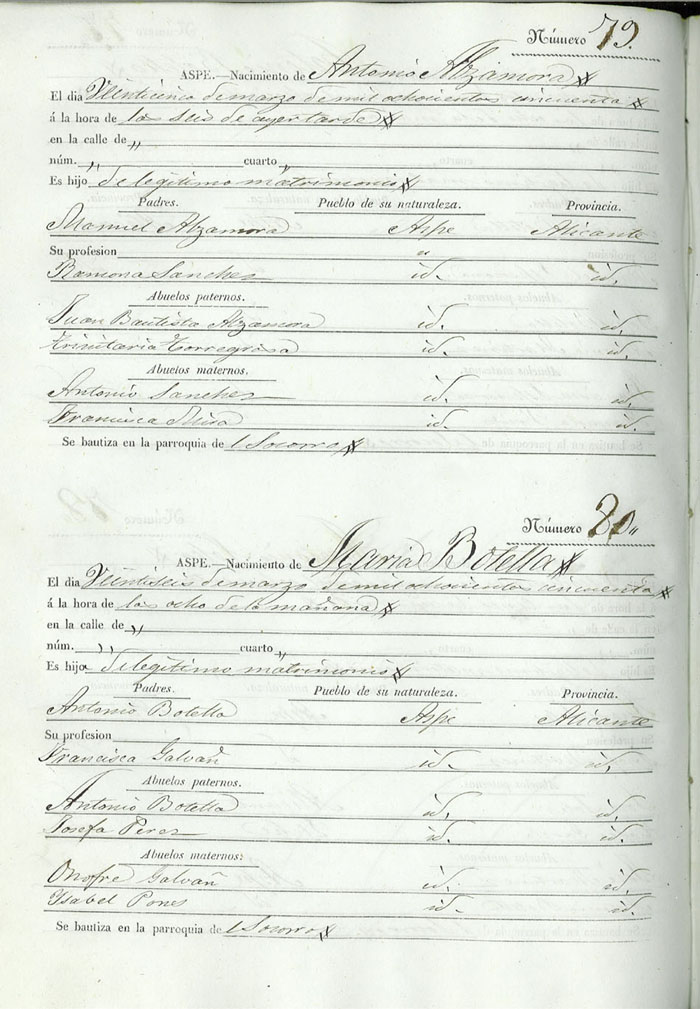 Número 79.
ASPE.—Nacimiento de Antonio Alzamora
El dia Veinticinco de marzo de mil ochocientos cincuenta
á la hora de las seis de ayer tarde
en la calle de „
núm. „ cuarto „
Es hijo de legitimo matrimonio
Padres. Pueblo de su naturaleza. Provincia.
Manuel Alzamora Aspe Alicante
Su profesion „
Ramona Sanches id. id.
Abuelos paternos.
Juan Bautista Alzamora id. id.
Trinitaria Torregrosa id. id.
Abuelos maternos.
Antonio Sanches id. id.
Francisca id. id.
Se bautiza en la parroquia de l Socorro
Número 80„
ASPE.—Nacimiento de Maria Botella
El dia Veintiseis de marzo de mil ochocientos cincuenta
á la hora de las ocho de la mañana
en la calle de „
núm. „ cuarto „
Es hija de legitimo matrimonio
Padres. Pueblo de su naturaleza. Provincia.
Antonio Botella Aspe Alicante
Su profesion
Francisca Galvañ id. id.
Abuelos paternos.
Antonio Botella id. id.
Josefa Peres id. id.
Abuelos maternos:
Onofre Galvañ id. id.
Ysabel Pones id. id.
Se bautiza en la parroquia de l Socorro